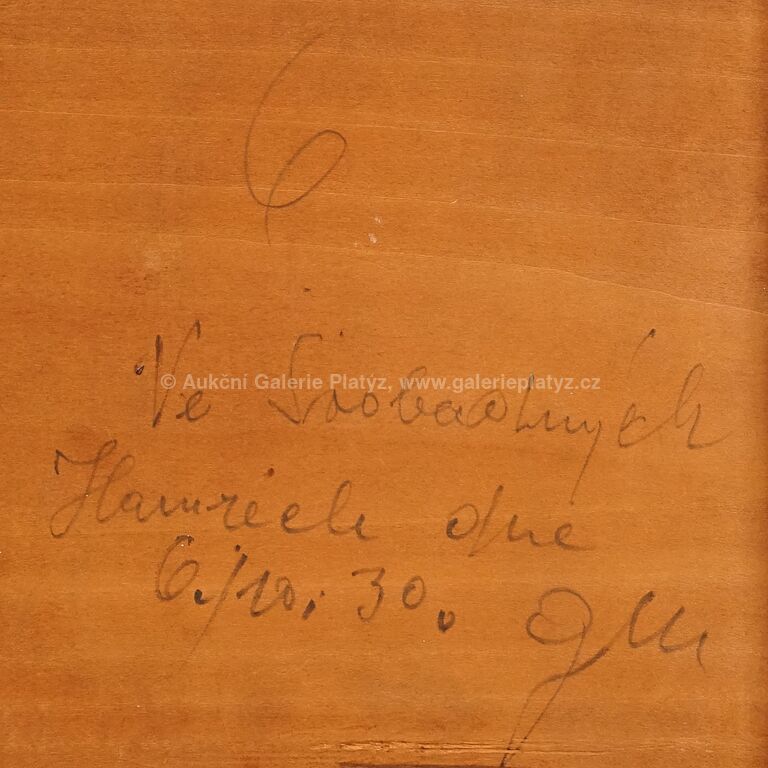 6
© Aukční Galerie Platýz, www.galerieplatyz.cz
Ve Svobodných
Hamrech dne
6./10. 30.